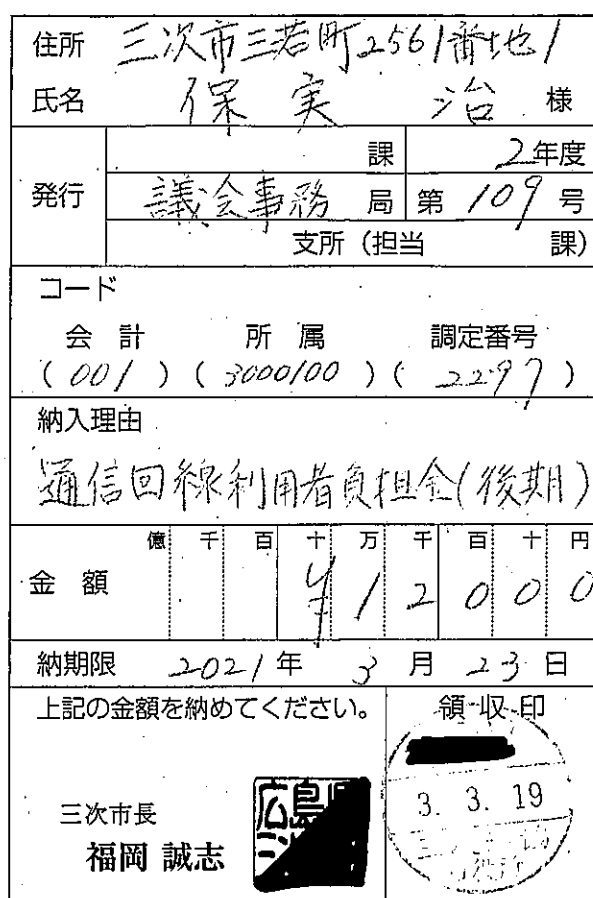 住所 三次市三若町2561番地1
氏名 保実 治 様
発行
課 2年度
議会事務 局 第 109 号
支所(担当 課)
コード
会計 所属 調定番号
(001)(3000100)(2297)
納入理由
通信回線利用者負担金(後期)
億 千 百 十 万 千 百 十 円
金額 ¥12000
納期限 2021年 3月 23日
上記の金額を納めてください。
領収印
3. 3. 19
三次市長
福岡 誠志
広島